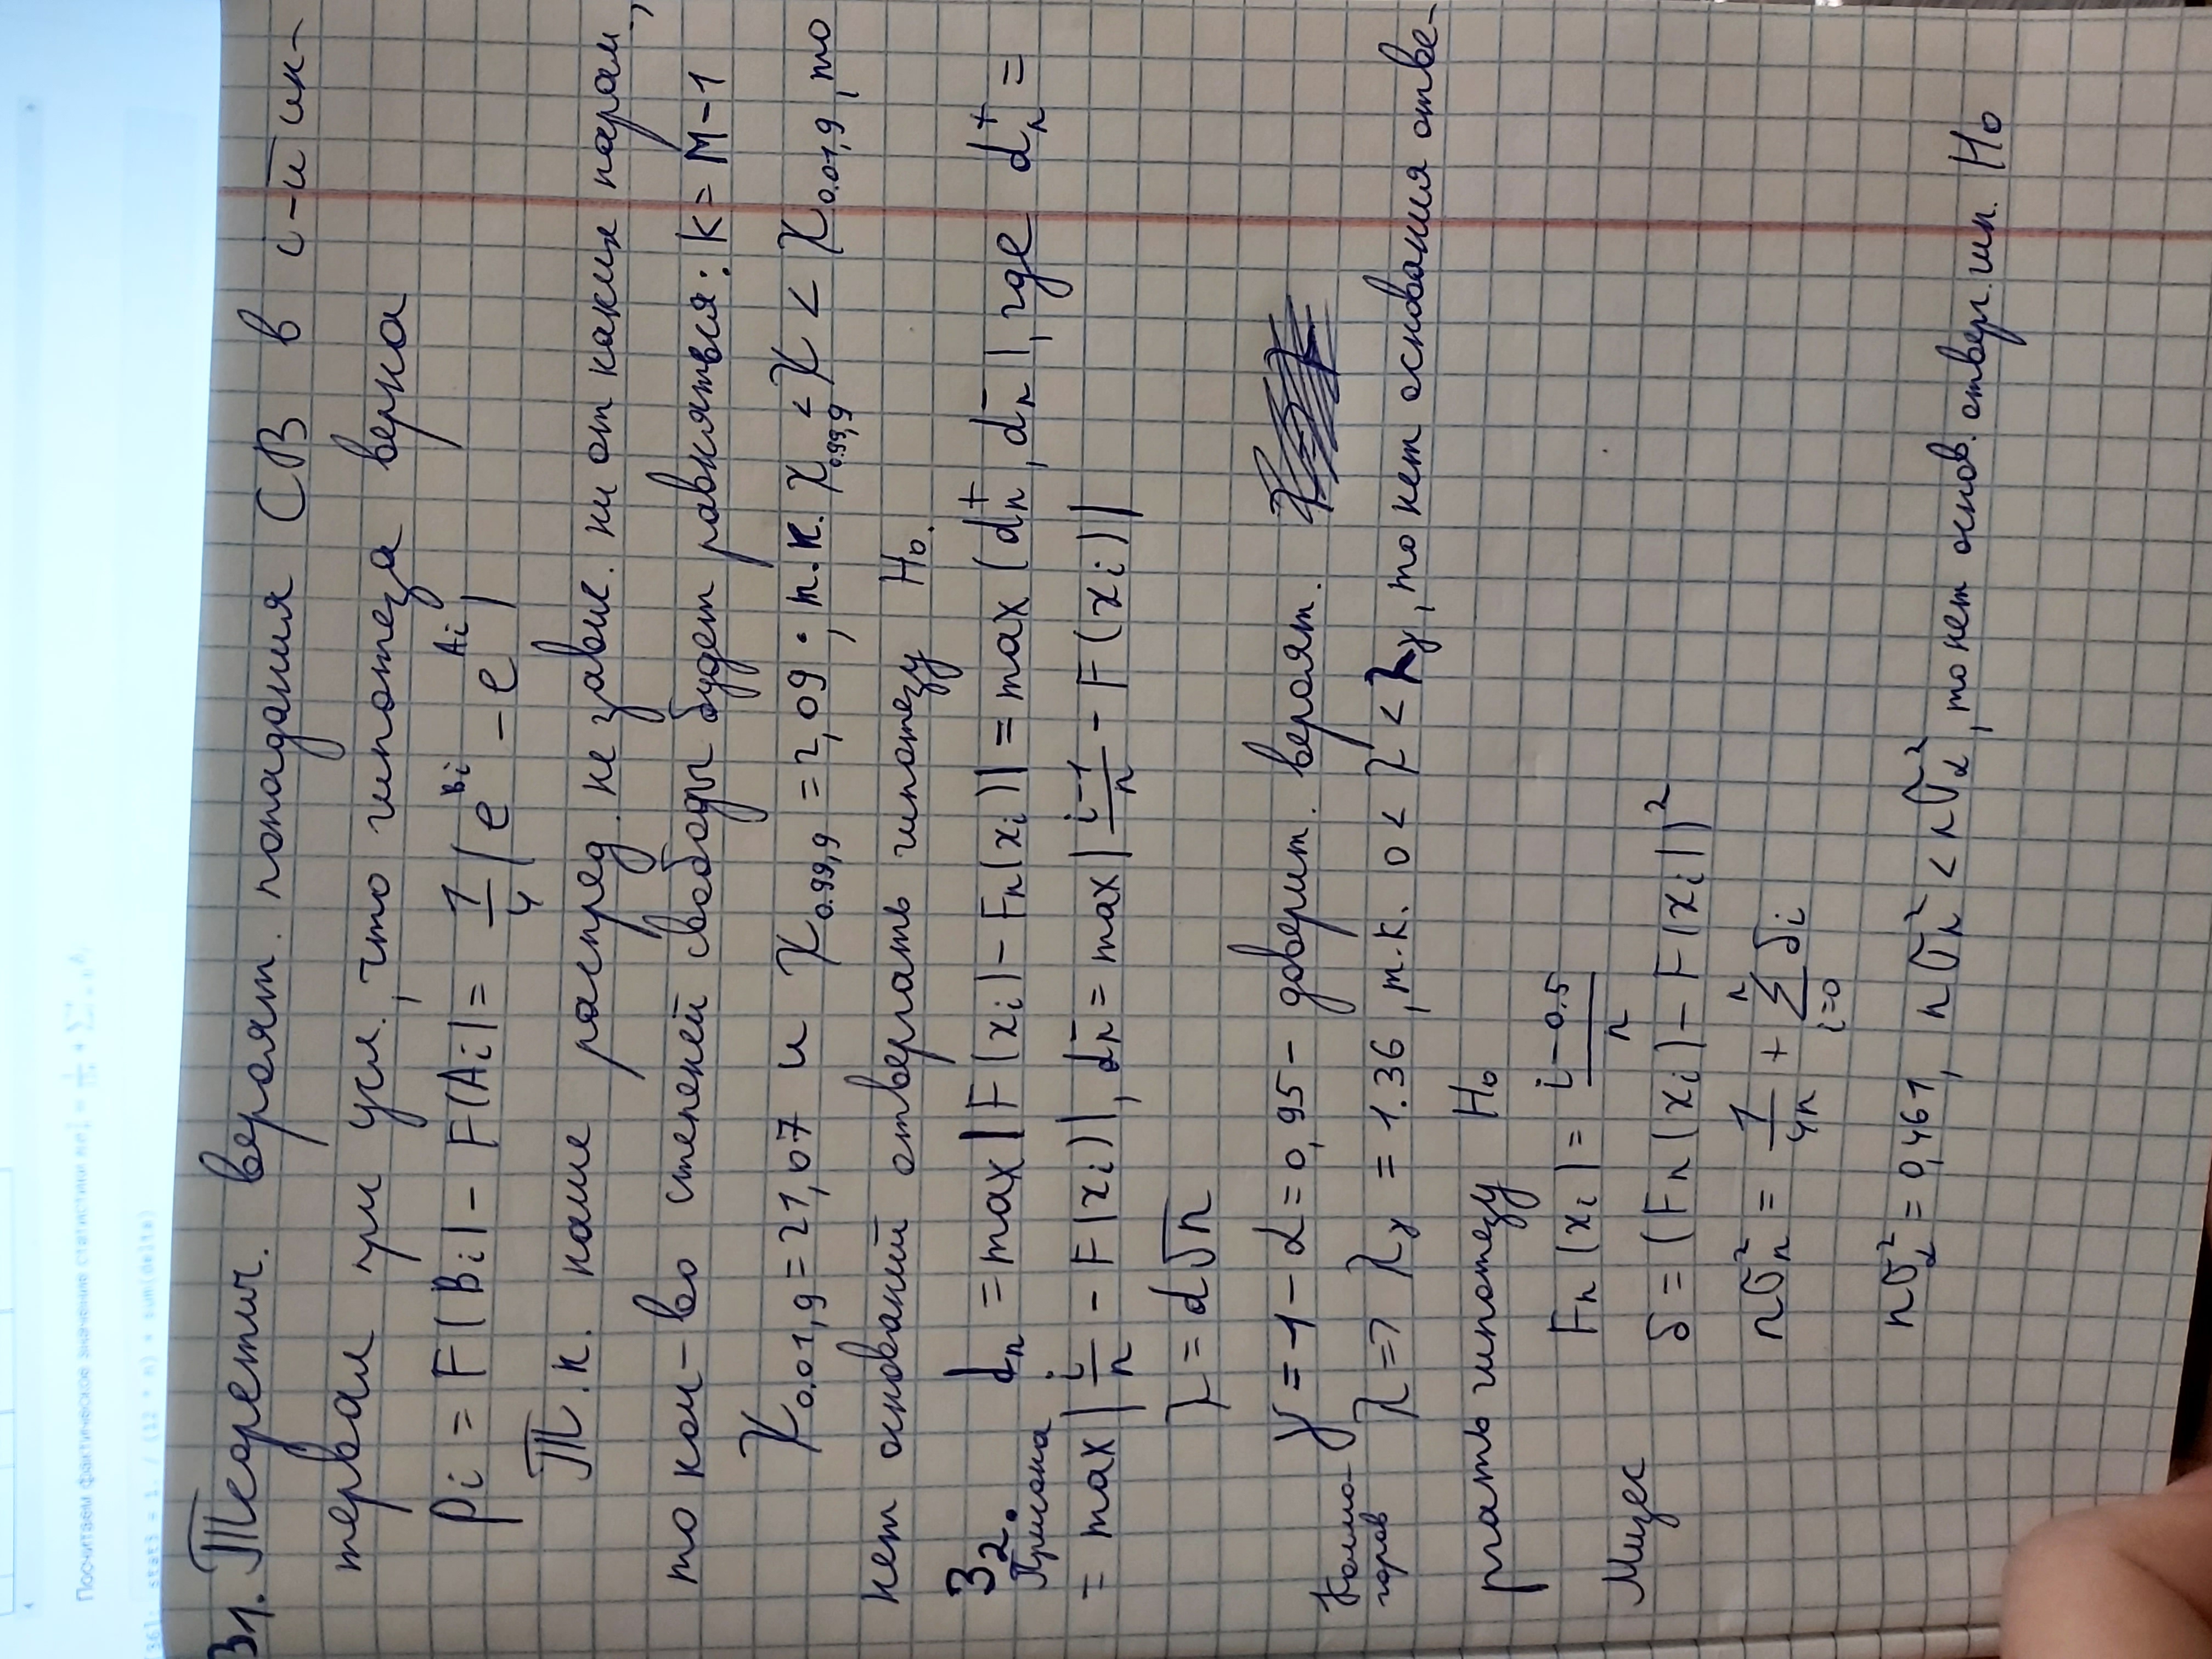 Посчитаем фактическое значение статистики
[36]: stat3 = 1. / (12 * n) + sum(delta)
31. Теоретич. вероят. попадания СВ в i-й ин-
тервал при усл., что гипотеза верна
pi = F(Bi) - F(Ai) = 1/4 (e^Bi - e^Ai)
Т.к. наше распред. не завис. ни от каких парам.,
то кол-во степеней свободы будет равняться: k = M-1
χ0.01,9 = 21,07 и χ0.99,9 = 2,09; т.к. χ0.99,9 < χ < χ0.01,9, то
нет оснований отвергать гипотезу H0.
32. dn = max|F(xi) - Fn(xi)| = max(dn+, dn-), где dn+ =
= max|i/n - F(xi)|, dn- = max|(i-1)/n - F(xi)|
λ = d√n
γ = 1 - α = 0,95 - доверит. вероят.
Колмо-
горов
λ => λγ = 1.36, т.к. 0 < λ < λγ, то нет основания отве-
ргать гипотезу H0
Fn(xi) = (i-0.5)/n
Мизес
δ = (Fn(xi) - F(xi))²
nσn² = 1/4n + Σ(i=0..n) δi
nσα² = 0,461, nσn² < nσα², то нет основ. отверг. гип. H0